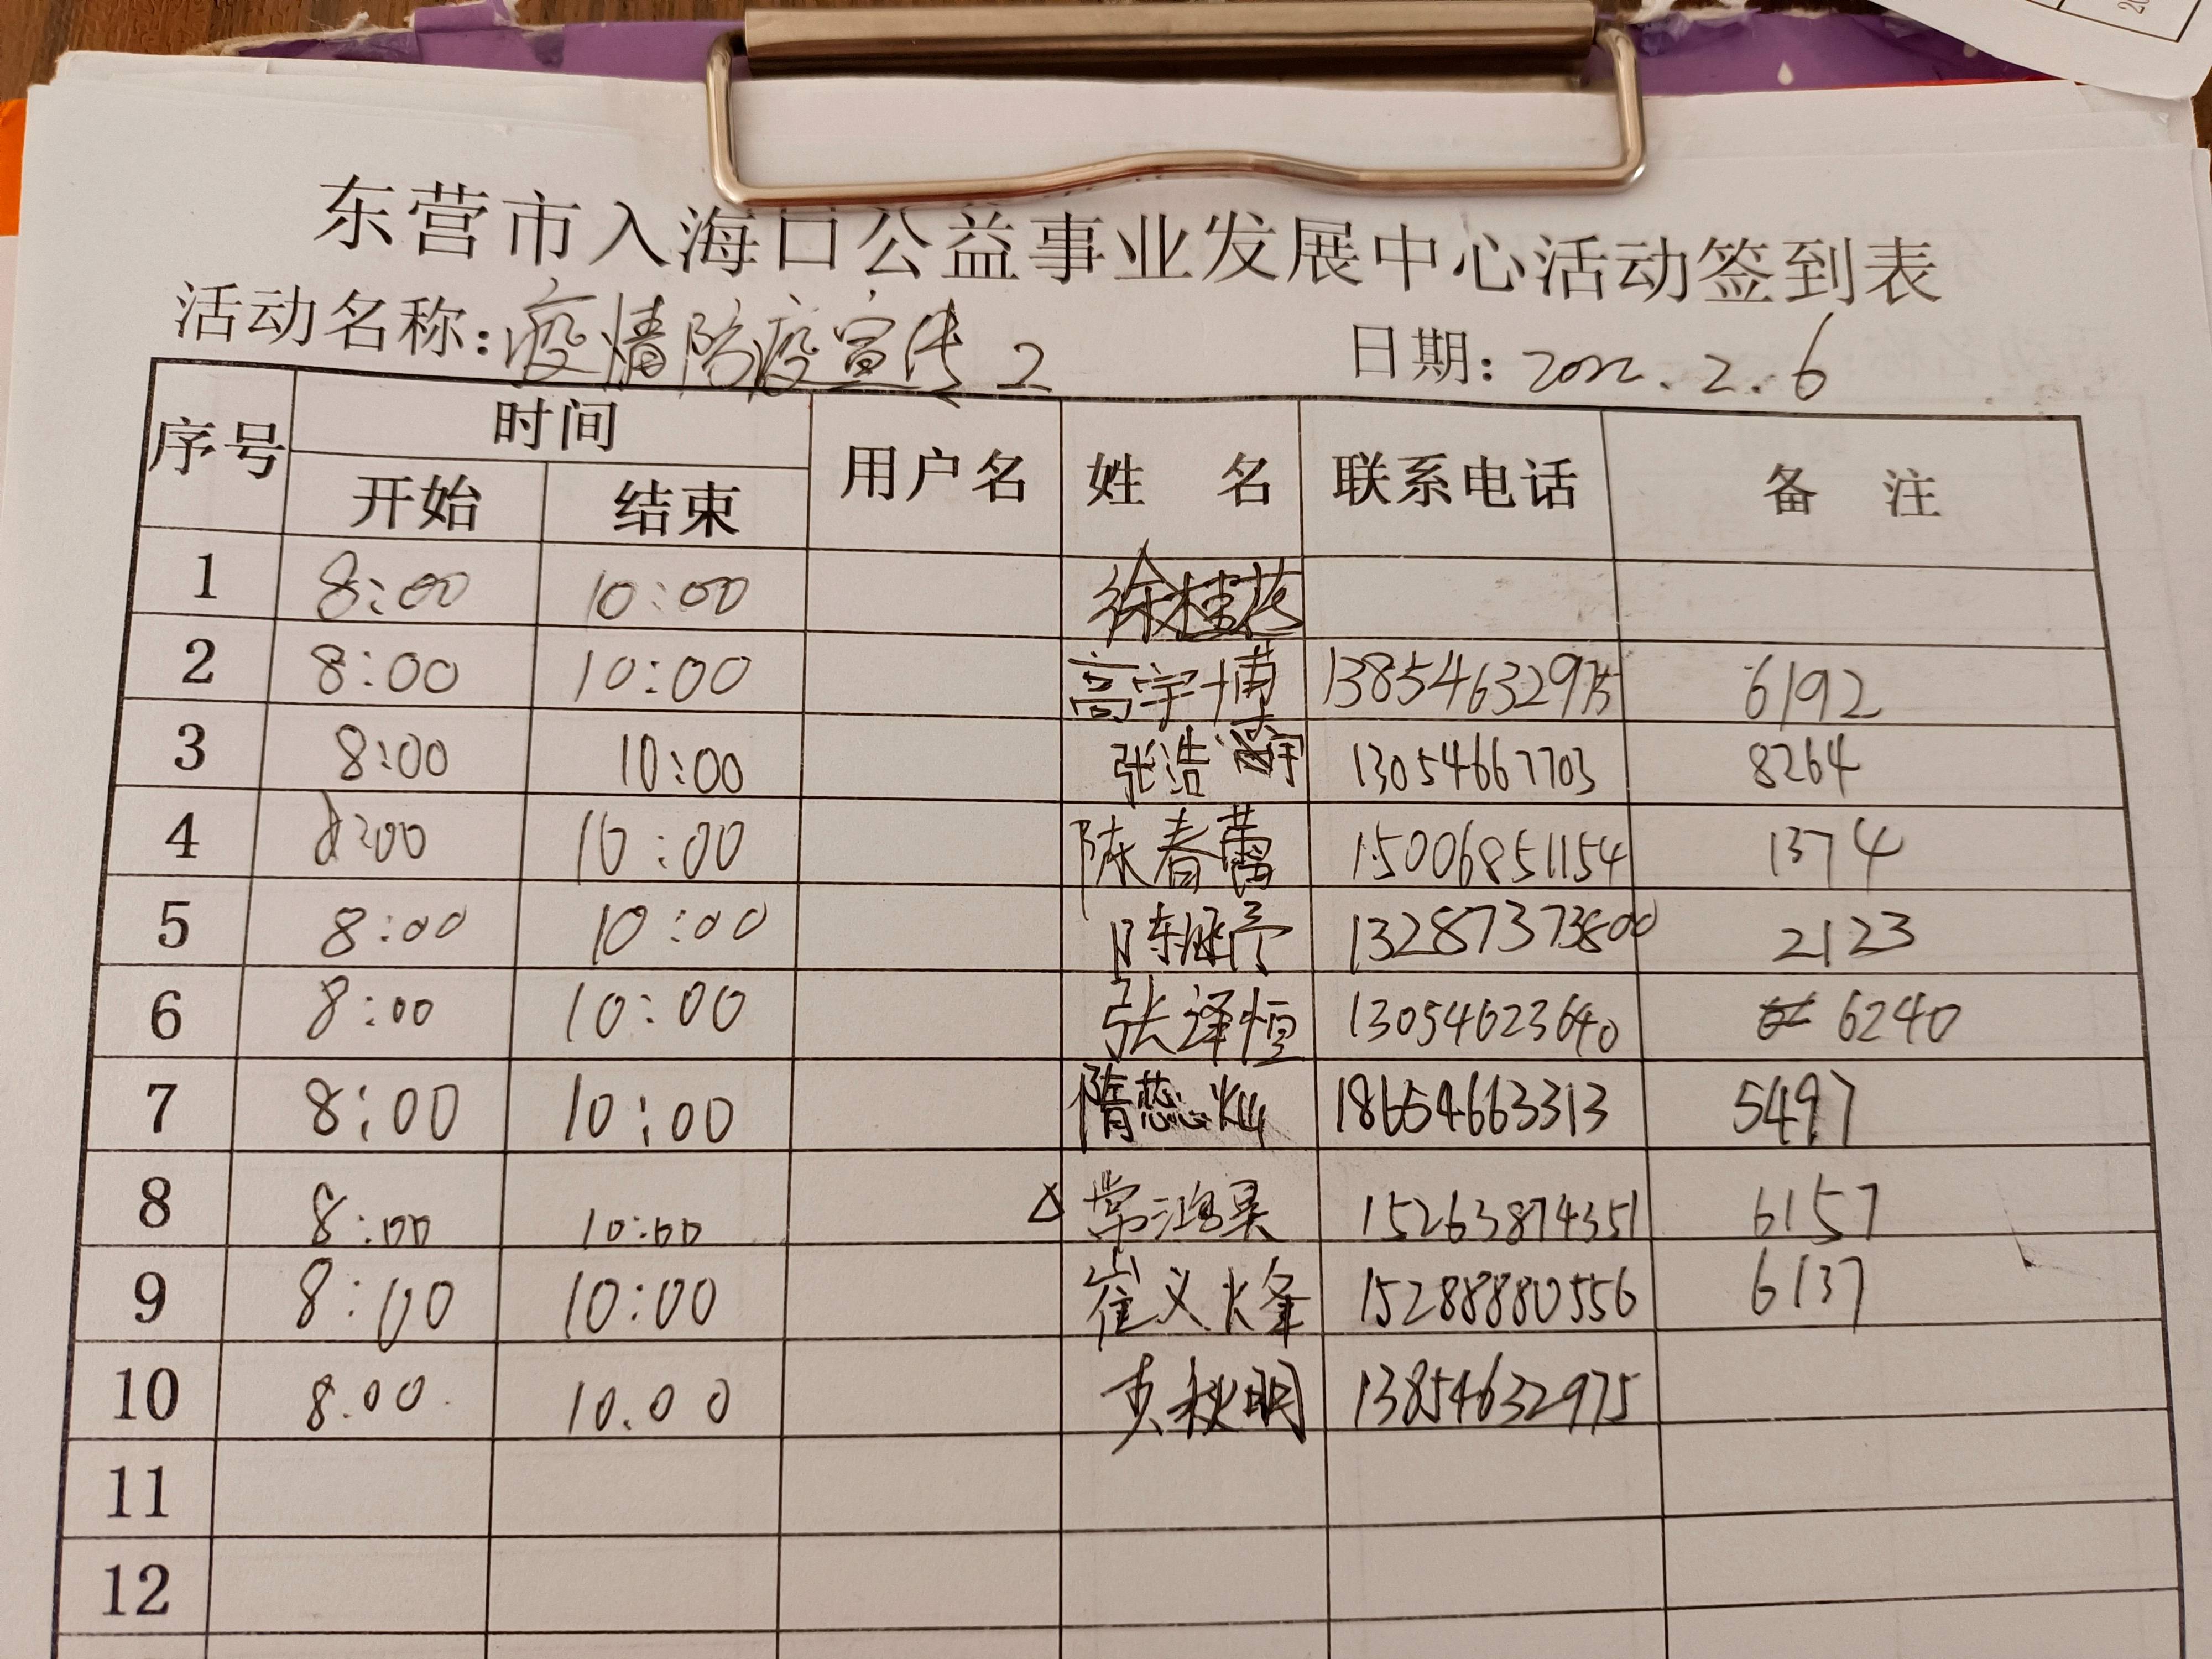 东营市入海口公益事业发展中心活动签到表
活动名称：疫情防疫宣传2 日期：2022.2.6
序号 时间 用户名 姓 名 联系电话 备 注
开始 结束
1 8:00 10:00 徐桂花
2 8:00 10:00 高宇博 13854632975 6192
3 8:00 10:00 张浩 13054667703 8264
4 8:00 10:00 陈春蕾 15006851154 1374
5 8:00 10:00 陈 13287373800 2123
6 8:00 10:00 张泽恒 13054623640 6240
7 8:00 10:00 隋蕊灿 18654663313 5497
8 8:00 10:00 常鸿昊 15263874351 6157
9 8:00 10:00 崔义烽 15288880556 6137
10 8.00 10.00 秋明 13854632975
11
12